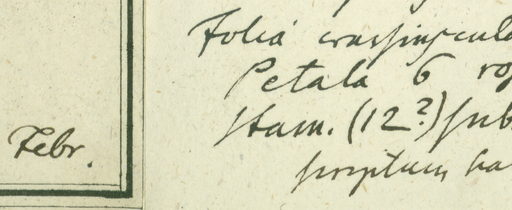 Febr.
Folia crassiuscula
Petala 6
Stam. (12?) sub